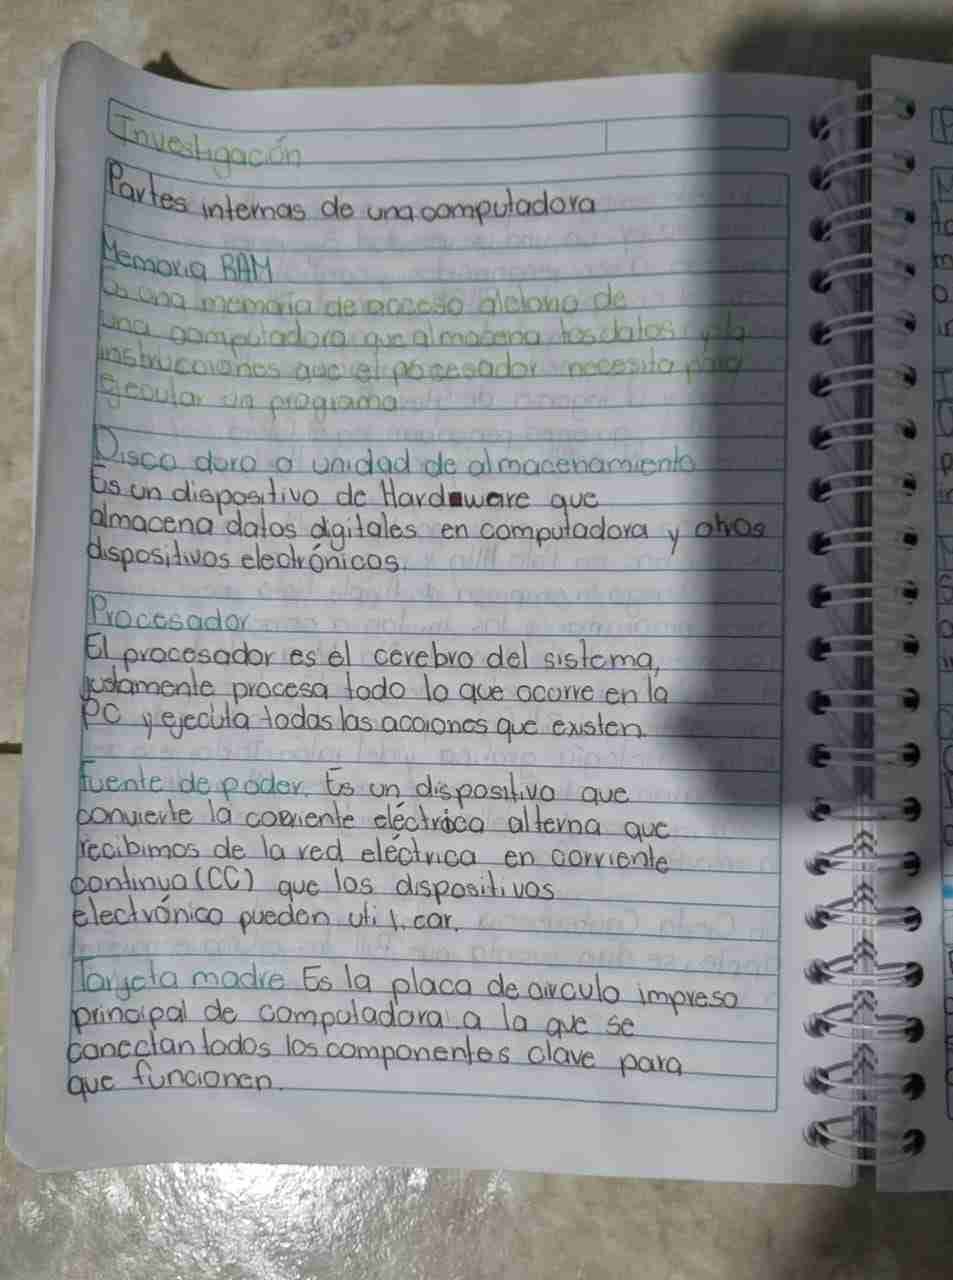 Investigación
Partes internas de una computadora
Memoria RAM
Es una memoria de acceso aleatorio de
una computadora que almacena los datos y la
instrucciones que el procesador necesita para
ejecutar un programa
Disco duro o unidad de almacenamiento
Es un dispositivo de Hardware que
almacena datos digitales en computadora y otros
dispositivos electrónicos.
Procesador
El procesador es el cerebro del sistema,
justamente procesa todo lo que ocurre en la
PC y ejecuta todas las acciones que existen.
Fuente de poder. Es un dispositivo que
convierte la corriente eléctrica alterna que
recibimos de la red eléctrica en corriente
continua (CC) que los dispositivos
electrónico pueden utilizar.
Tarjeta madre Es la placa de circulo impreso
principal de computadora a la que se
conectan todos los componentes clave para
que funcionen.